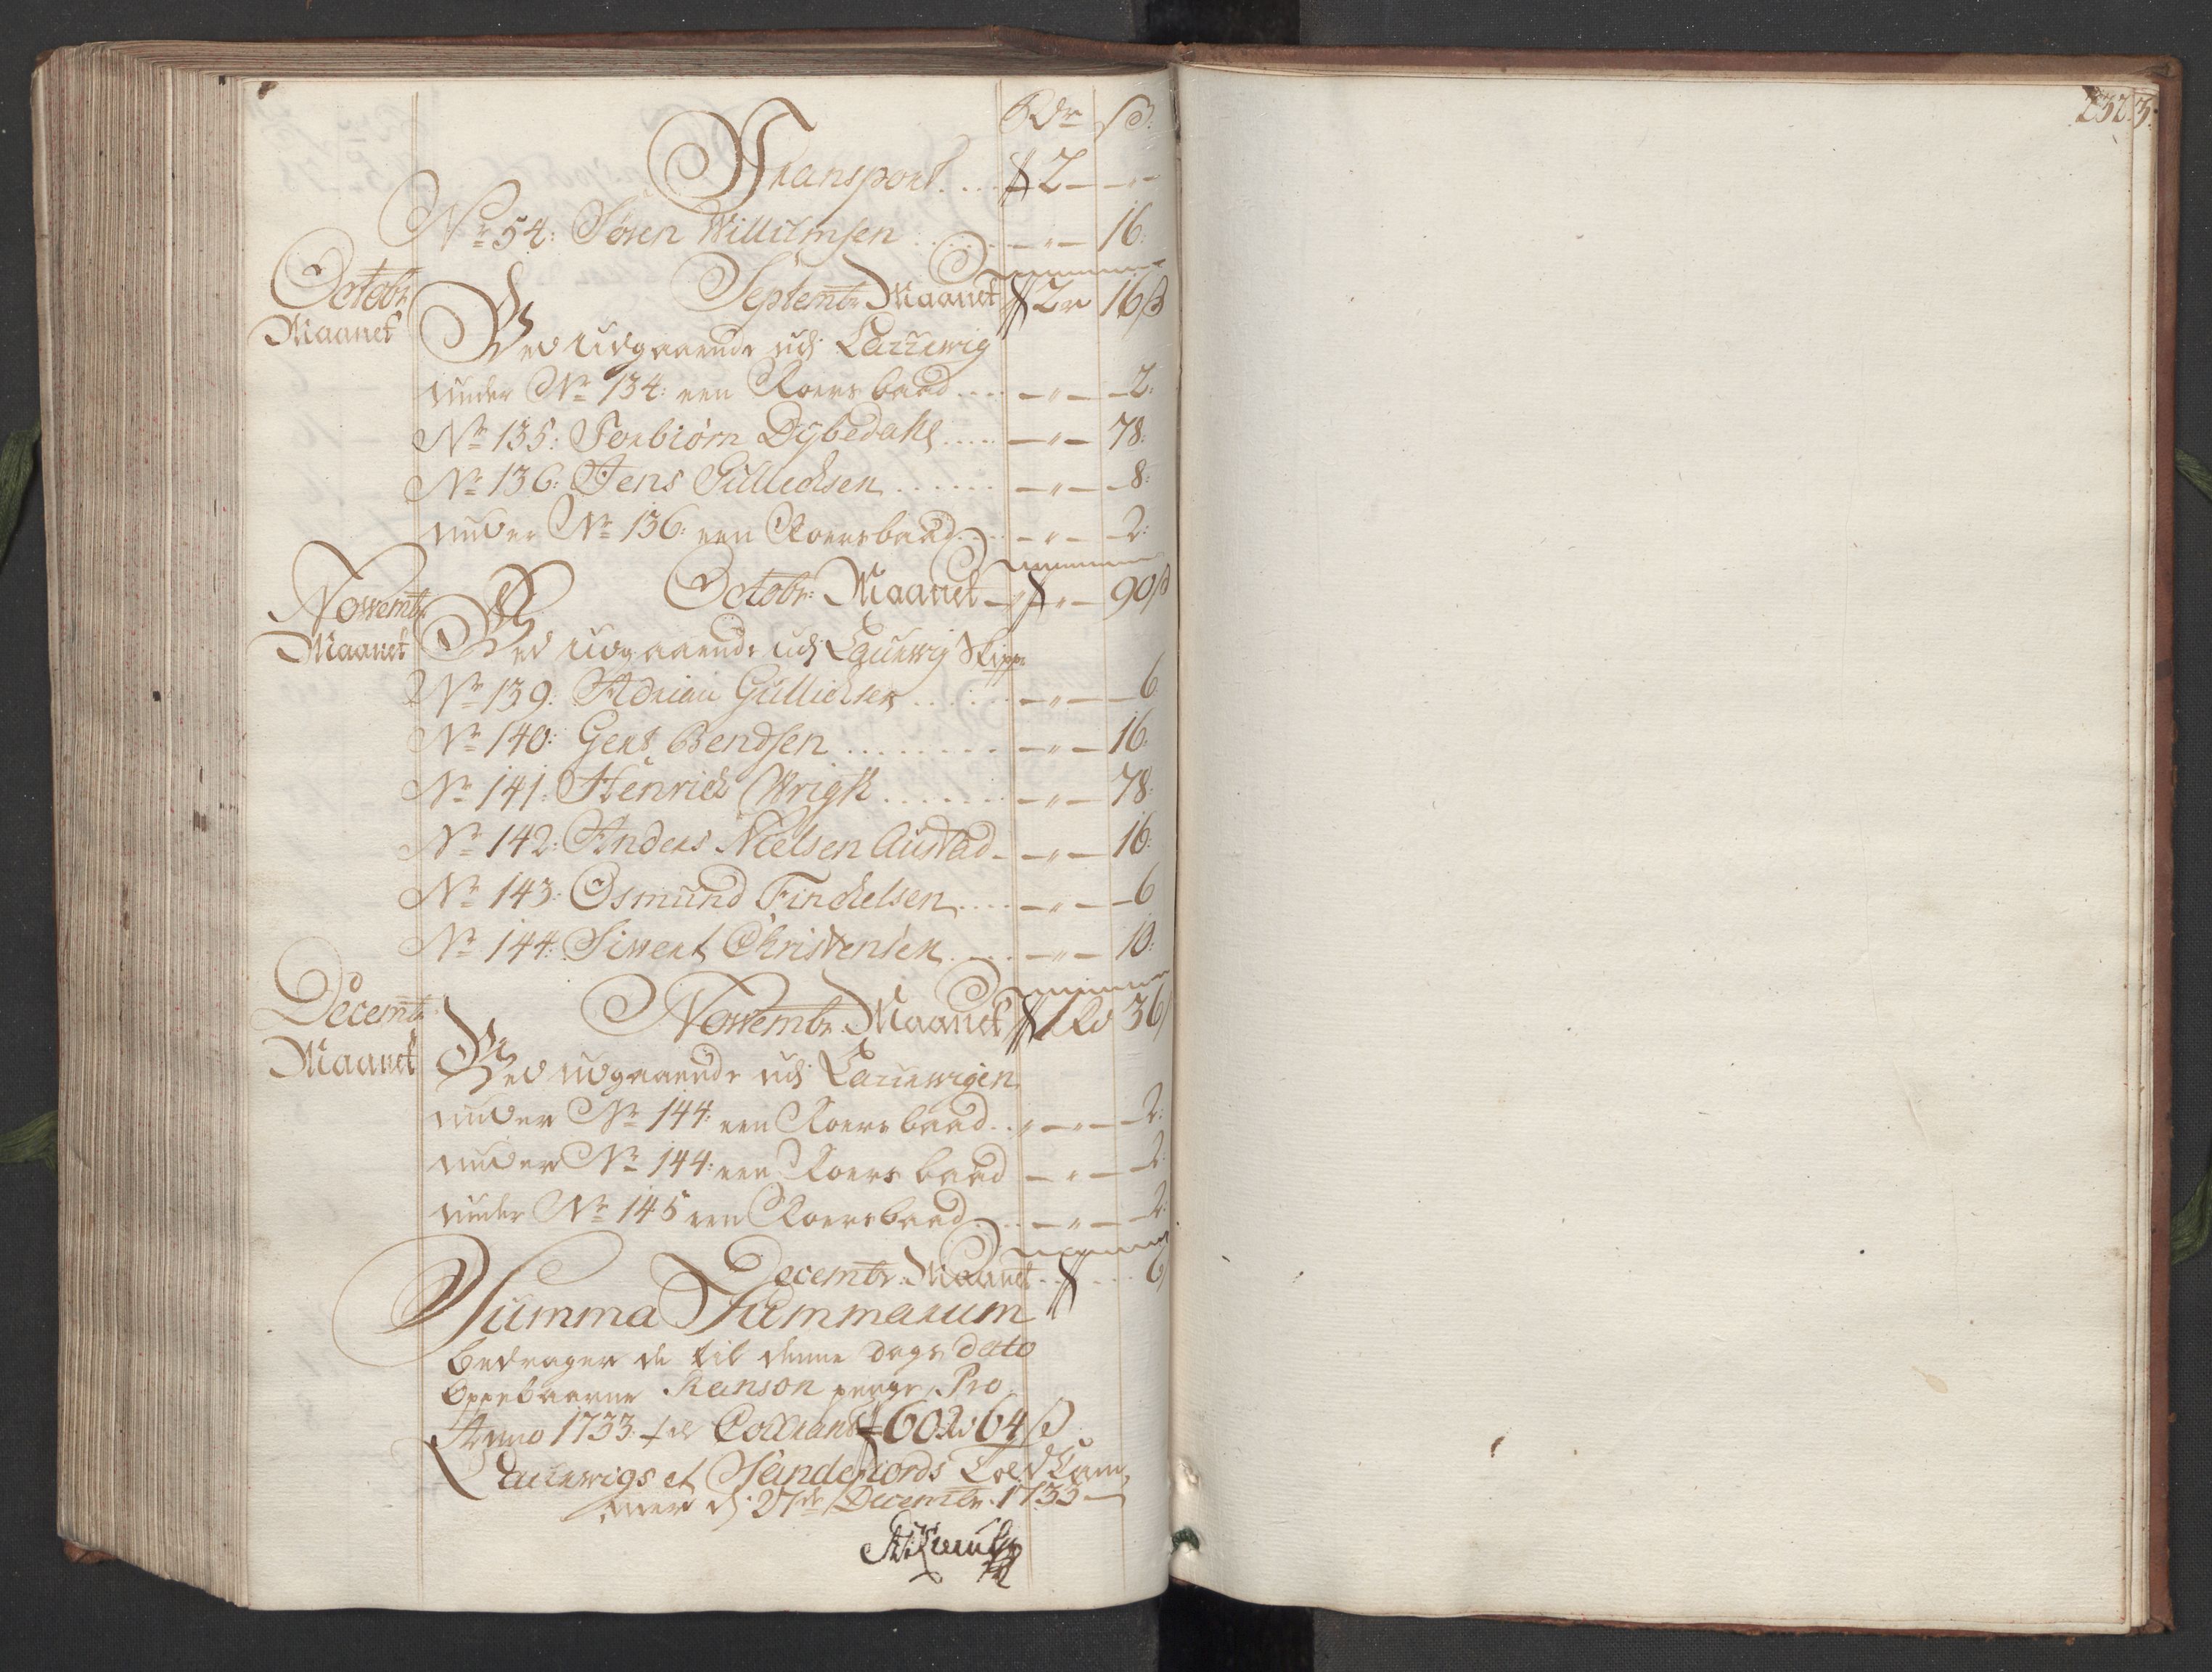 Rdr ß.
Transport.... 2 — „ —
No 54: Søren Willumsen ...... — „ — 16:
Septembr Maanet 2 r 16 ß
Octobr Maanet
Ved udgaaende udj Laurwig
under No 134: een Roers baad .... — „ — 2:
No 135: Torbiørn Dybedahl ..... — „ — 78:
No 136: Jens Gullichsen ...... — „ — 8:
under No 136: een Roersbaad .... — „ — 2:
Octobr: Maanet — „ — 90 ß
Novembr Maanet
Ved udgaaende udj Laurwig Skippr
No 139: Adrian Gullichsen ...... — „ — 6
No 140: Gert Bendsen ........ — „ — 16:
No 141: Henrich Wrigh ....... — „ — 78:
No 142: Anders Nielsen Austad. — „ — 16:
No 143: Osmund Finchelsen .... — „ — 6
No 144: Siwert Christensen .... — „ — 10:
Novembr. Maanet 1 Rd 36 ß
Decembr Maanet
Ved udgaaende udj Laurwigen
under No 144: een Roers baad .. — „ — 2:
under No 144: een Roers baad — „ — 2:
under No 145 een Roersbaad .... — „ — 2:
Decembr: Maanet .. 6 ß
Summa Summarum
bedrager de til denne Dags dato
Oppebaarne Ranson penge, Pro
Anno 1733. Courant 60 Rd 64 ß
Laurwigs et Sandefiords Told Cam
mer dj 27de Decembr. 1733
232 3.